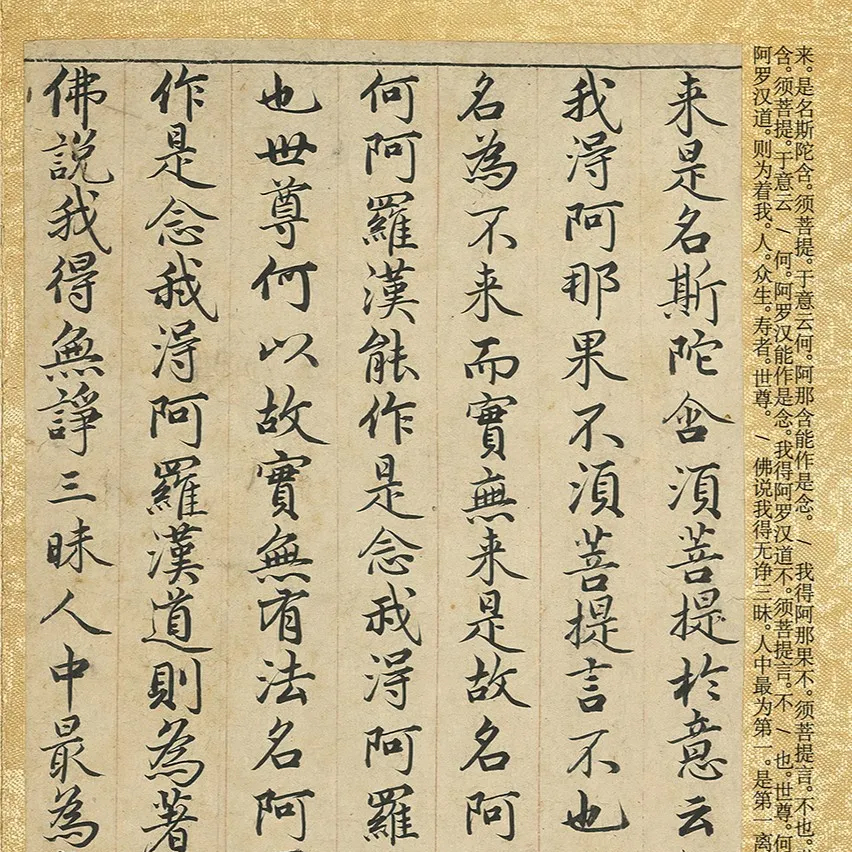 来。是名斯陀含。须菩提。于意云何。阿那含能作是念。/ 我得阿那果不。须菩提言。不也。
含。须菩提。于意云 / 何。阿罗汉能作是念。我得阿罗汉道不。须菩提言。不 / 也。世尊。何
阿罗汉道。则为着我。人。众生。寿者。世尊。/ 佛说我得无诤三昧。人中最为第一。是第一离
来是名斯陀含須菩提於意云
我得阿那果不須菩提言不也
名為不来而實無来是故名阿
何阿羅漢能作是念我得阿羅
也世尊何以故實無有法名阿
作是念我得阿羅漢道則為著
佛說我得無諍三昧人中最為